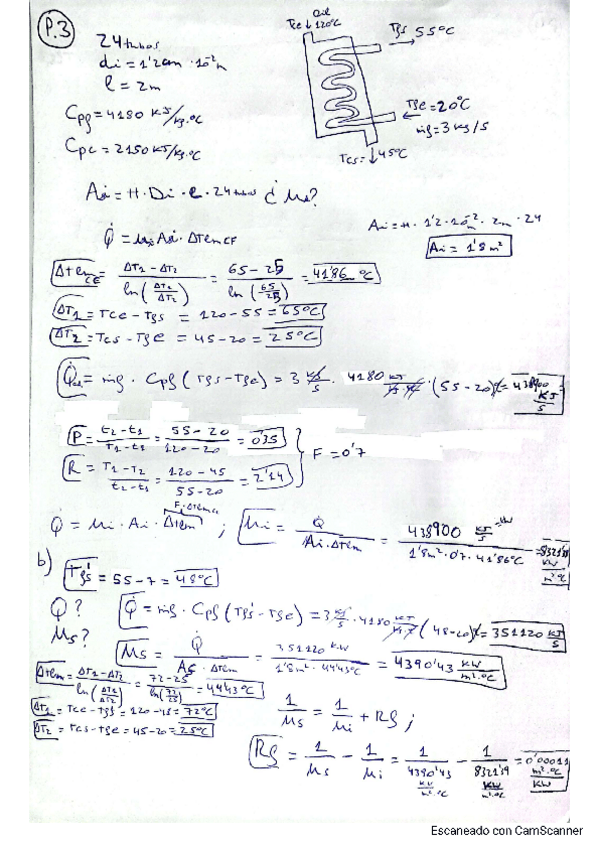 P.3
24 tubos
di = 1'2cm · 10⁻² m
l = 2m
Cpf = 4180 KJ/kg·ºC
Cpc = 2150 KJ/kg·ºC
Oil
Tce ↓ 120ºC
Tfs → 55ºC
Tfe = 20ºC
ṁf = 3 kg/s
Tcs = ↓ 45ºC
Ai = π · Di · l · 24 tubos ¿ Ms?
Ai = π · 1'2 · 10⁻² m · 2m · 24
Ai = 1'8 m²
Q̇ = Mi Ai · ΔTemCF
Δtem CE = (ΔT1 - ΔT2) / ln(ΔT1/ΔT2) = (65 - 25) / ln(65/25) = 41'86 ºC
ΔT1 = Tce - Tfs = 120 - 55 = 65ºC
ΔT2 = Tcs - Tfe = 45 - 20 = 25ºC
= ṁf · Cpf (Tfs - Tfe) = 3 kg/s · 4180 KJ/kg·ºC · (55 - 20)ºC = 438900 KJ/s
P = (t2 - t1)/(T1 - t1) = (55 - 20)/(120 - 20) = 0'35
R = (T1 - T2)/(t2 - t1) = (120 - 45)/(55 - 20) = 2'14
F = 0'7
Q̇ = Mi · Ai · Δtem ; Mi = Q̇ / (Ai · Δtem) = 438900 KJ/s / (1'8m² · 0'7 · 41'86ºC) = KW/m²·ºC
b) Tfs' = 55 - 7 = 48ºC
Q? Q̇ = ṁf · Cpf (Tfs' - Tfe) = 3 kg/s · 4180 (48 - 20)ºC = 351120 KJ/s
Ms?
Ms = Q̇ / (As · Δtem) = 351120 KW / (1'8m² · 44'43ºC) = 4390'43 KW/m²·ºC
Δtem = (ΔT1 - ΔT2) / ln(ΔT1/ΔT2) = (72 - 25) / ln(72/25) = 44'43ºC
ΔT1 = Tce - Tfs' = 120 - 48 = 72ºC
ΔT2 = Tcs - Tfe = 45 - 20 = 25ºC
1/Ms = 1/Mi + Rf ;
Rf = 1/Ms - 1/Mi = 1/(4390'43 KW/m²·ºC) - 1/(8321'39 KW/m²·ºC) = 0'00011 m²·ºC/KW
Escaneado con CamScanner